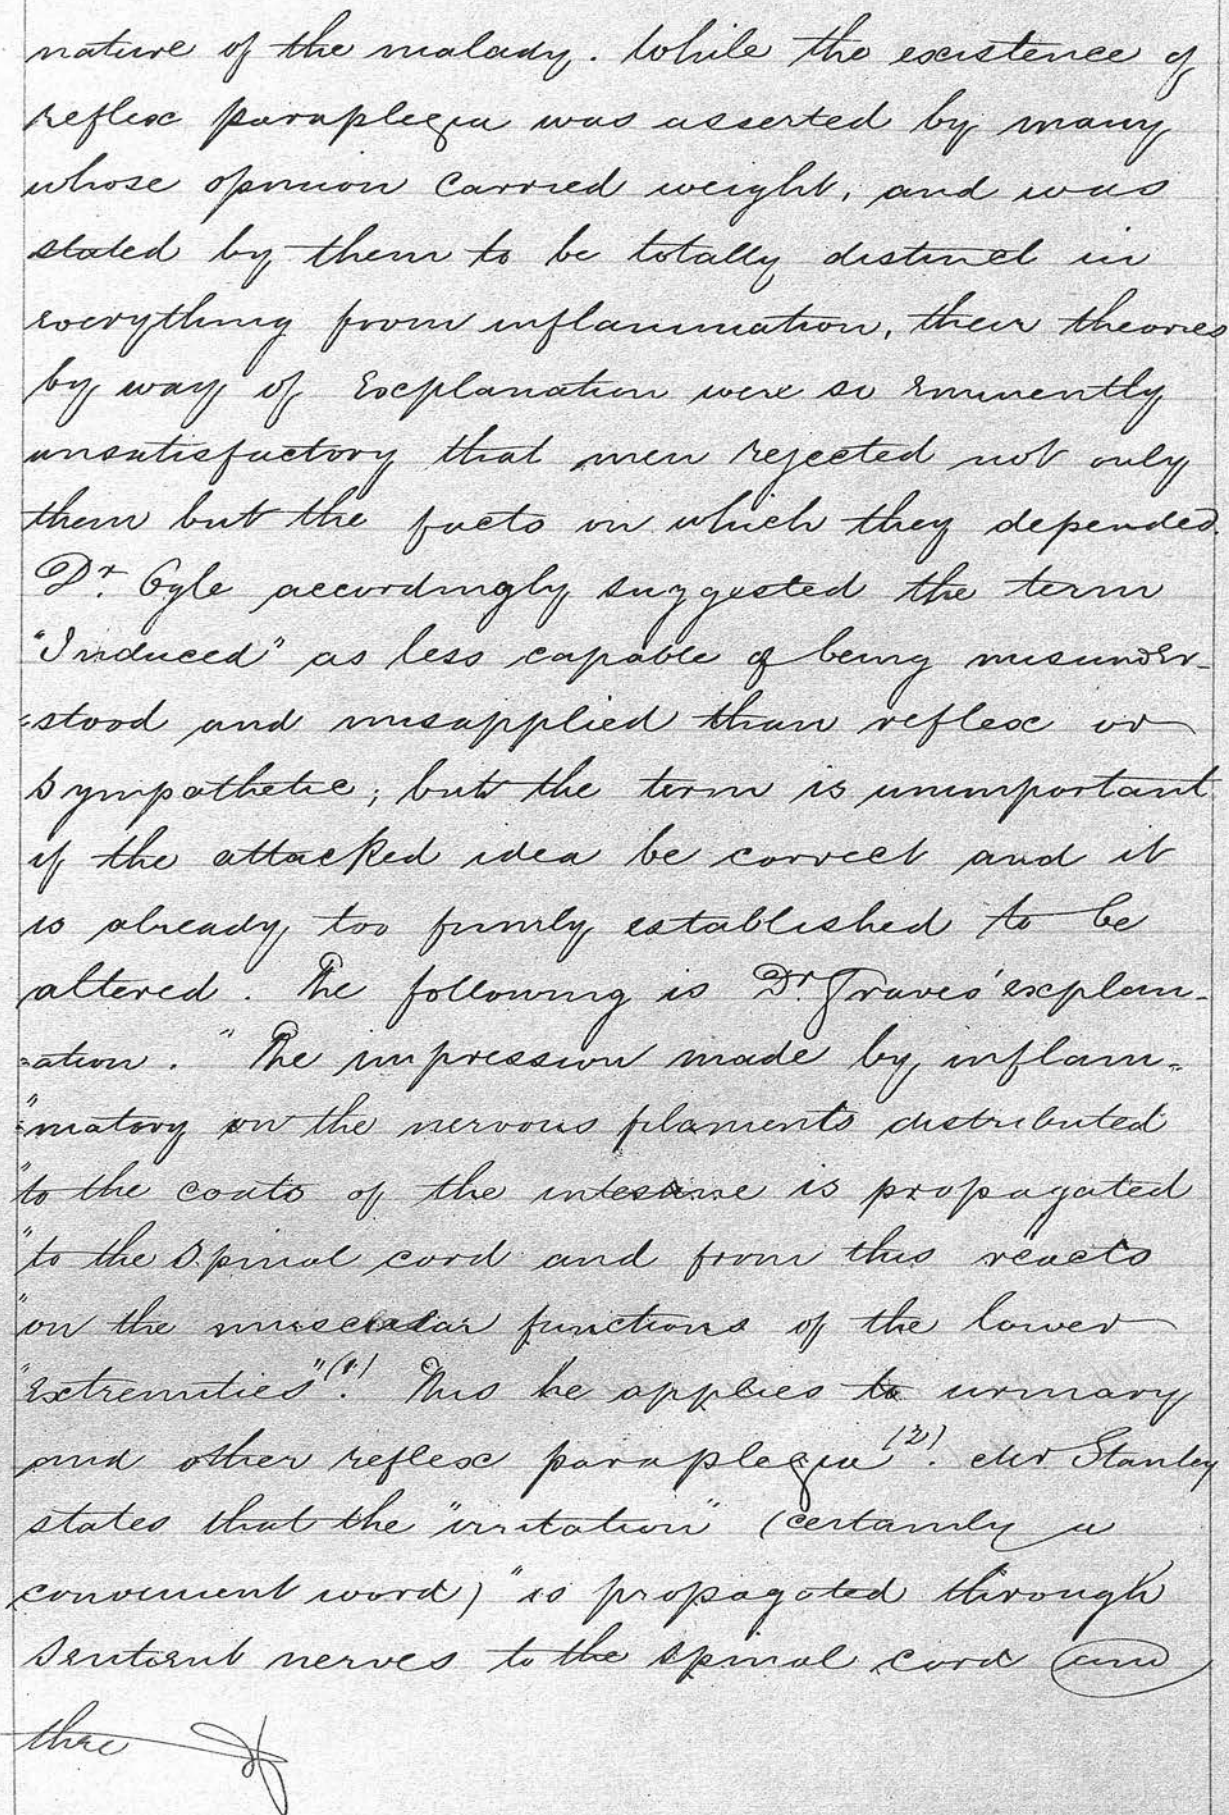 nature of the malady. While the existence of
reflex paraplegia was asserted by many
whose opinion carried weight, and was
stated by them to be totally distinct in
everything from inflammation, their theories
by way of explanation were so eminently
unsatisfactory that men rejected not only
them but the facts on which they depended.
Dr. Ogle accordingly suggested the term
"Induced" as less capable of being misunder-
=stood and misapplied than reflex or
sympathetic; but the term is unimportant
if the attacked idea be correct and it
is already too firmly established to be
altered. The following is Dr. Graves' explan-
=ation. "The impression made by inflam-
"=matory on the nervous filaments distributed
"to the coats of the intestine is propagated
"to the spinal cord and from thus reacts
"on the muscular functions of the lower
"extremities"(1.) This he applies to urinary
and other reflex paraplegia(2). Mr Stanley
states that the "irritation" (certainly a
convenient word) "is propagated through
sentient nerves to the spinal cord and
thre